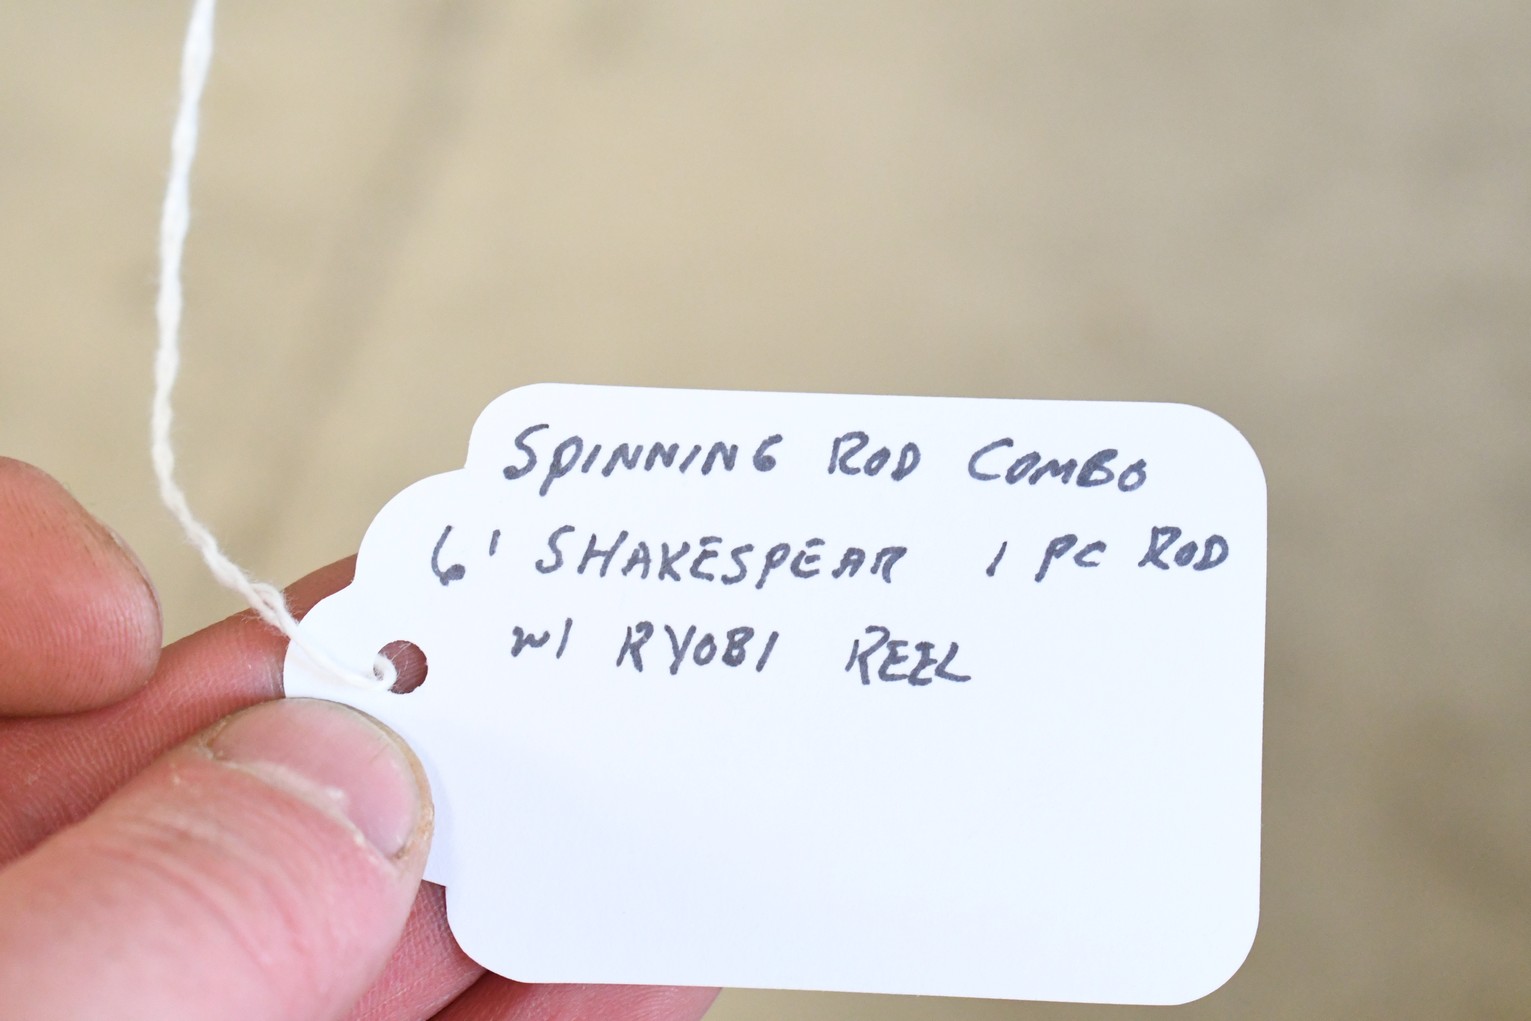 SPINNING ROD COMBO
6' SHAKESPEAR 1 PC ROD
W/ RYOBI REEL